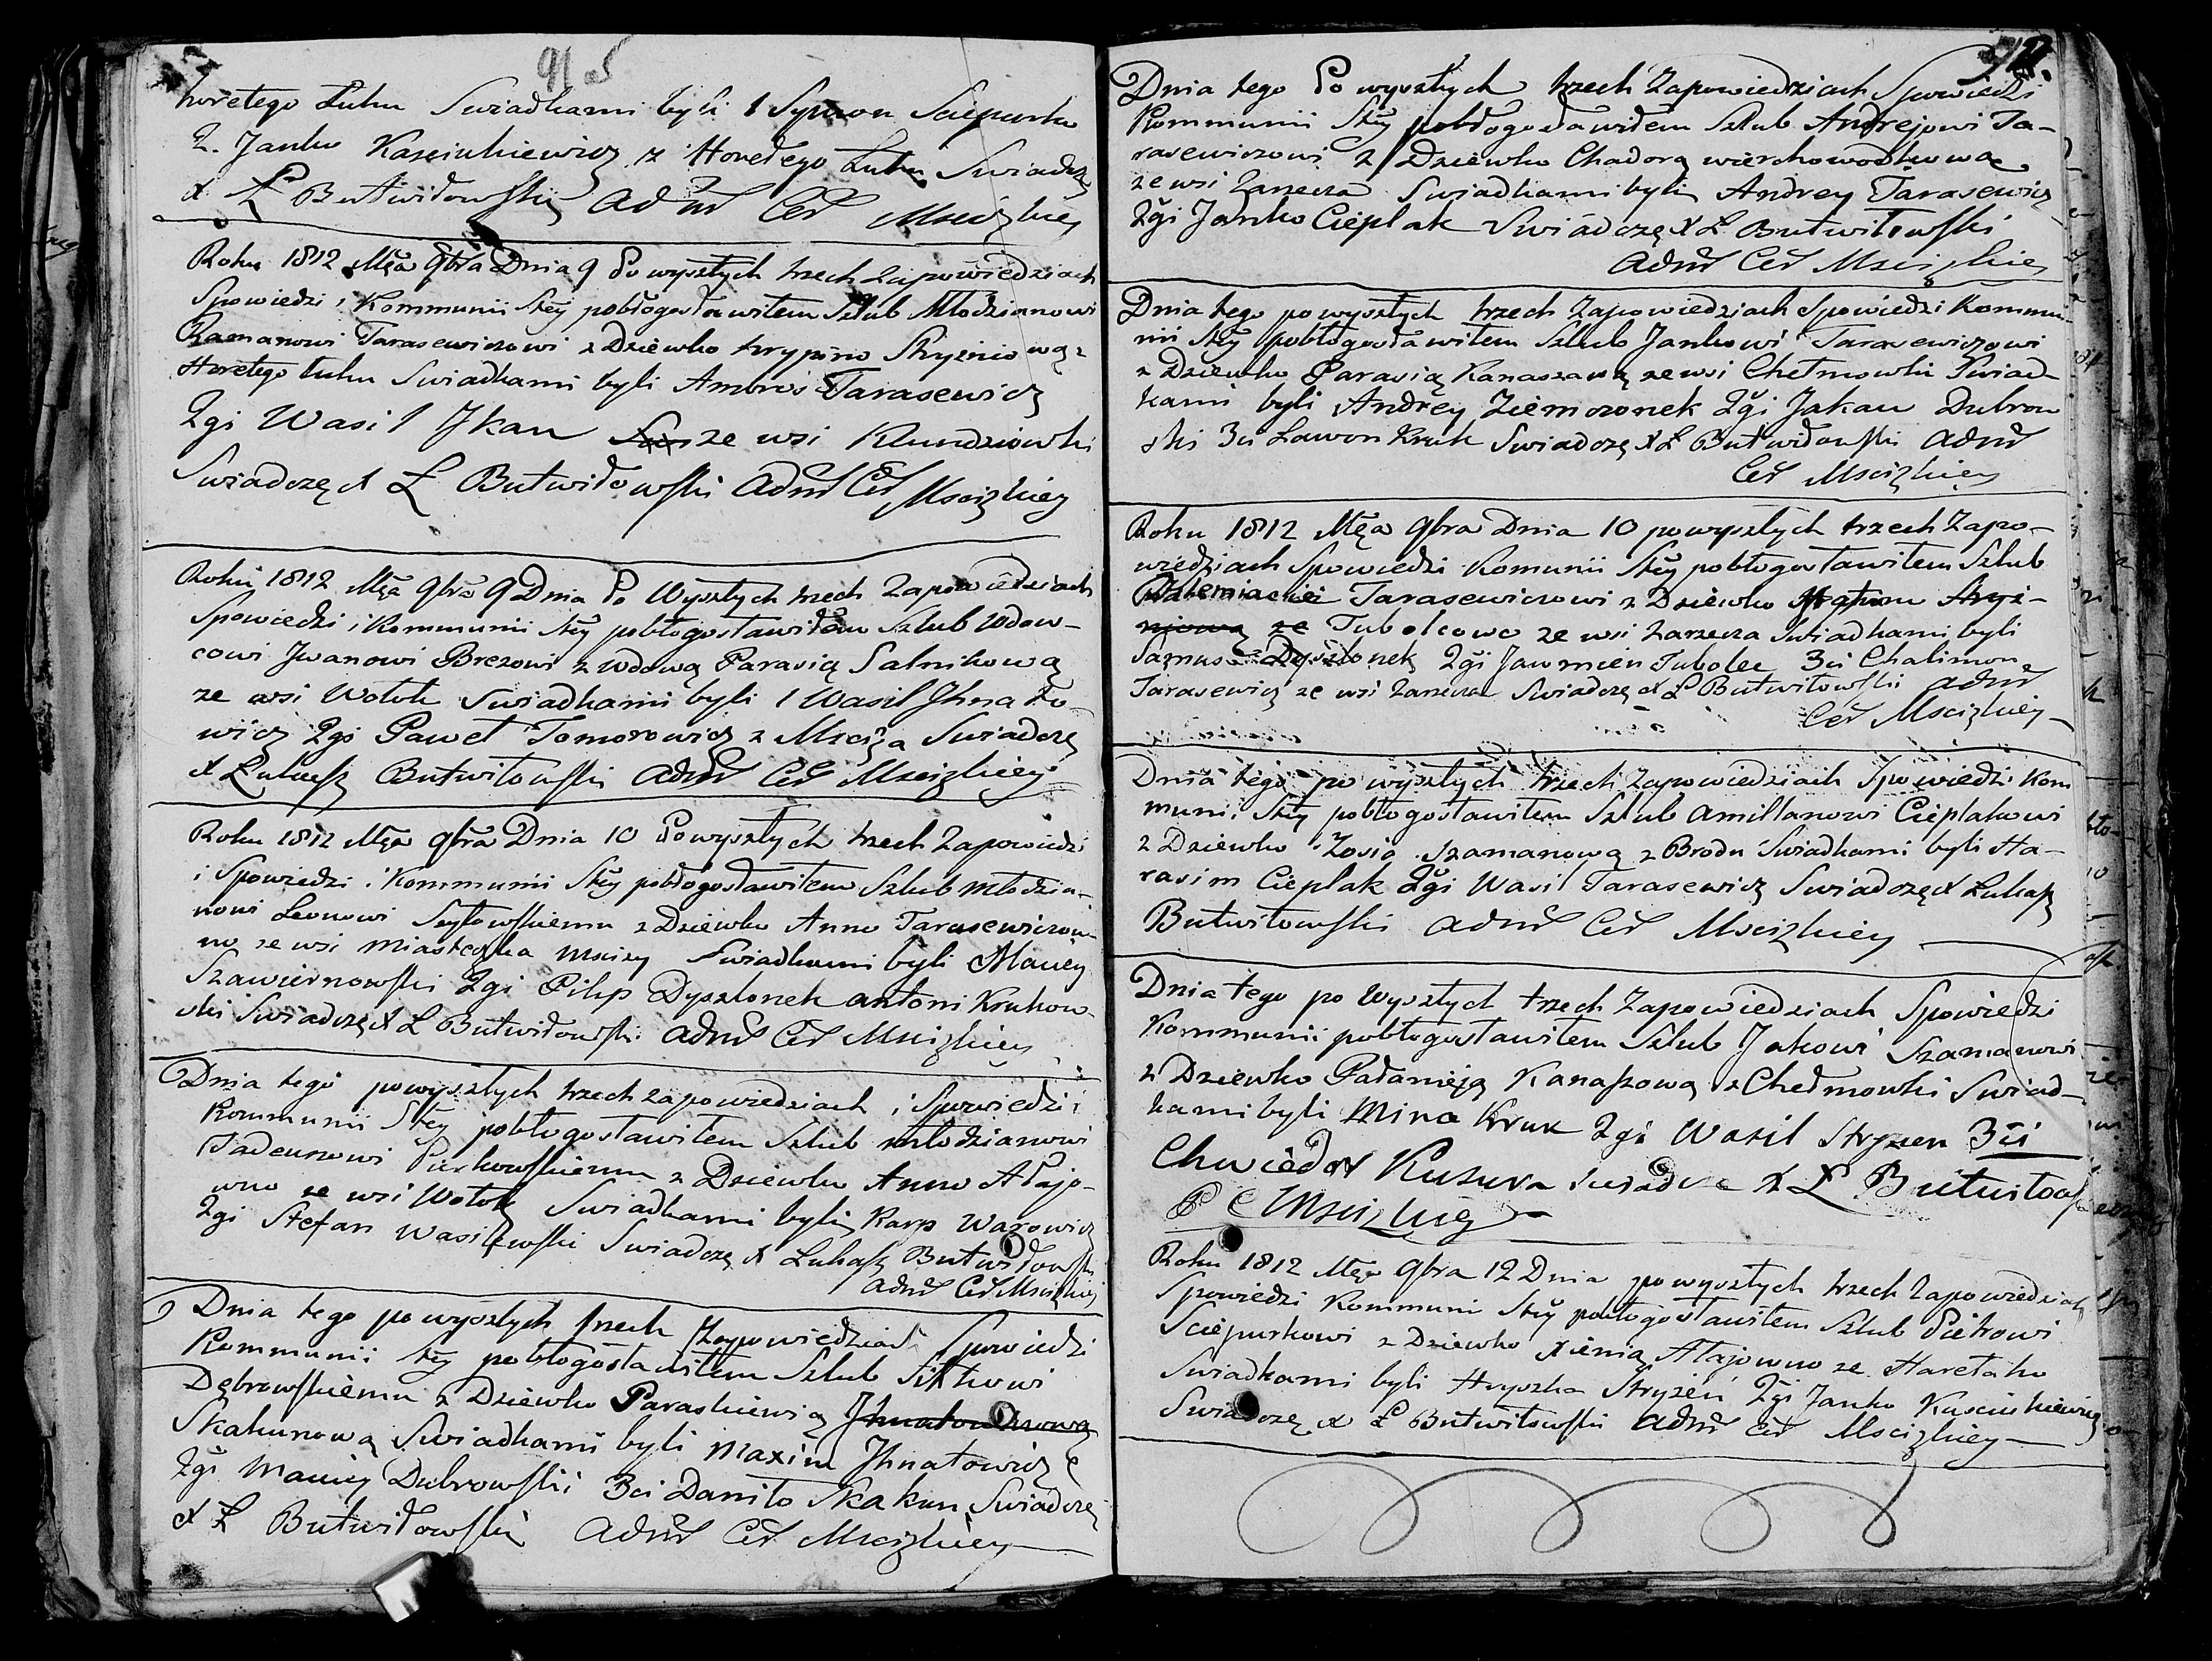 horełego Łuhu Swiadkami byli 1 Symon Sciepurko
2. Janko Kasciukiewicz z Horełego Łuhu Swiadczę
X Ł Butwiłowski Adm͂ Ceͬ Mscizkiey
Roku 1812 Mca 9bra Dnia 9 Po wyszłych trzech zapowiedziach
Spowiedzi i Kommunii Stey pobłogosławiłem Szlub Młodzianowi
Ramanowi Tarasewiczowi z Dziewko Aurypino Stryzniową z
Horełego Łuhu Swiadkami byli Ambros Tarasewicz
2gi Wasil Jkan ze wsi Klundziowki
Swiadczę X Ł Butwiłowski Adm͂ Ceͬ Mscizkiey
Roku 1812 Mca 9bra 9 Dnia Po Wyszłych trzech Zapowiedziach
Spowiedzi i Kommunii Stey pobłogosławiłem Szlub Wdow-
cowi Jwanowi Brezowi z Wdową Parasią Salnikową
ze wsi Wołok Swiadkami byli 1 Wasil Jhnato-
wicz 2gi Paweł Tomorowicz z Msciża Swiadczę
X Łukasz Butwiłowski Adm͂ Ceͬ Mscizkiey
Roku 1812 Mca 9bra Dnia 10 Po wyszłych trzech Zapowiedzi
i Spowiedzi i Kommunii Stey pobłogosławiłem Szlub Młodzia-
nowi Leonowi Sułowskiemu z Dziewko Anno Tarasewiczow-
no ze wsi Miasteczka Mscizy Swiadkami byli Maciey
Szawiernowski 2gi Pilip Dyszlonek Antoni Krukow-
ski Swiadczę X Ł Butwiłowski Adm͂ Ceͬ Mscizkiey
Dnia tego po wyszłych trzech zapowiedziach i Spowiedzi i
Kommunii Stey pobłogosławiłem Szlub Młodzianowi
Tadeuszowi Pierkowskiemu z Dziewko Anno Ałajo-
wno ze wsi Wołok Swiadkami byli Karp Warowicz
2gi Stefan Wasilewski Swiadczę X Łukasz Butwiłowski
Adm͂ Ceͬ Mscizkiey
Dnia tego po wyszłych trzech Zapowiedziach Spowiedzi
Kommunii Stey pobłogosławiłem Szlub Siłkowi
Dąbrowskiemu z Dziewko Paraskiewią Jhnatowiczową
Skakunową Swiadkami byli Maxim Jhnatowicz
2gi Maciey Dubrowski 3ci Daniło Skakun Swiadczę
X Ł Butwiłowski Adm͂ Ceͬ Mscizkiey
Dnia tego Po wyszłych trzech Zapowiedziach Spowiedzi
Kommunii Stey pobłogosławiłem Szlub Andrejowi Ta-
rasewiczowi z Dziewko Chadorą wierchowodkową
ze wsi Zarzecza Swiadkami byli Andrey Tarasewicz
2gi Janko Cieplak Swiadczę X Ł Butwiłowski
Adm͂ Ceͬ Mscizkiey
Dnia tego po wyszłych trzech Zapowiedziach Spowiedzi Kommu-
nii Stey pobłogosławiłem Szlub Jankowi Tarasewiczowi
z Dziewko Parasią Kanaszową ze wsi Chełmowki Swiad-
kami byli Andrey Ziemczonek 2gi Jakau Dubrow
ski 3ci Ławon Kruk Swiadczę X Ł Butwiłowski Adm͂
Ceͬ Mscizkiey
Roku 1812 Mca 9bra Dnia 10 po wyszłych trzech Zapo-
wiedziach Spowiedzi Komunii Stey pobłogosławiłem Szlub
Tarasewiczowi z Dziewko Stryż-
niową ze Tubolcowo ze wsi Zarzecza Swiadkami byli
Samus Dyszlonek 2gi Jawmien Tubolec 3ci Chalimon
Tarasewicz ze wsi Zarzecza Swiadczę X Ł Butwiłowski Adm͂
Ceͬ Mscizkiey
Dnia tego po wyszłych trzech Zapowiedziach Spowiedzi Kom
munii Stey pobłogosławiłem Szlub Amillanowi Cieplakowi
z Dziewko Zosią Szamanową z Brodu Swiadkami byli Ha-
rasim Cieplak 2gi Wasil Tarasewicz Swiadczę X Łukasz
Butwiłowski Adm͂ Ceͬ Mscizkiey
Dnia tego po Wyszłych trzech Zapowiedziach Spowiedzi
Kommunii pobłogosławiłem Szlub Jakowi Szamanowi
z Dziewko Pałanieją Kanaszową z Chełmowki Swiad-
kami byli Mina Kruk 2gi Wasil Stryzen 3ci
Chwiedor Kuzura Swiadcze X Ł Butwiłows
P C Mscizkiey
Roku 1812 Mca 9bra 12 Dnia po wyszłych trzech Zapowiedziach
Spowiedzi Kommunii Stey pobłogosławiłem Szlub Pietrowi
Sciepurkowi z Dziewko Xienią Ałajowno ze Harełaho
Swiadkami byli Hryszka Stryżeń 2gi Janko Kasciukiewicz
Swiadczę X Ł Butwiłowski Adm͂ Ceͬ Mscizkiey